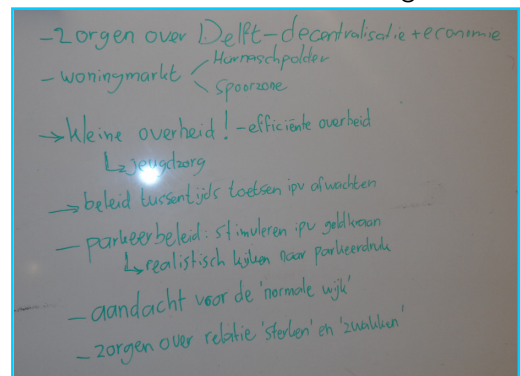 - zorgen over Delft - decentralisatie + economie
- woningmarkt
Harnaschpolder
Spoorzone
→ kleine overheid! - efficiënte overheid
↳ jeugdzorg
→ beleid tussentijds toetsen ipv afwachten
- parkeerbeleid: stimuleren ipv geldkraan
↳ realistisch kijken naar parkeerdruk
- aandacht voor de 'normale wijk'
- zorgen over relatie 'sterken' en 'zwakken'